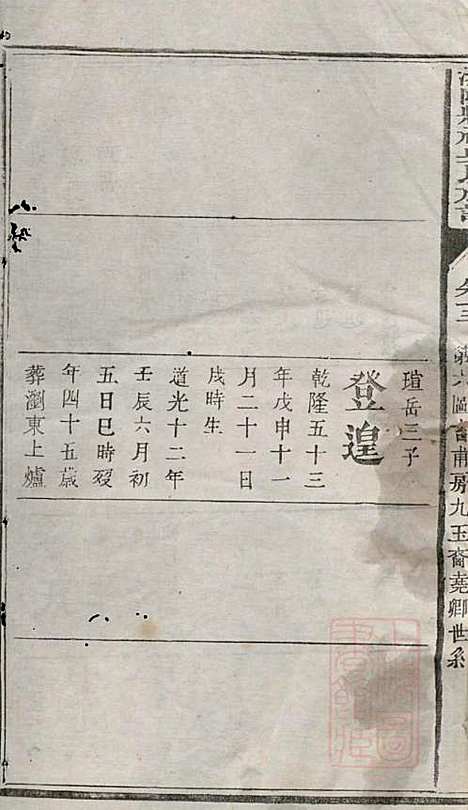 卷三 第六圖 甫房九玉裔堯卿世系
瑄岳三子
登遑
乾隆五十三
年戊申十一
月二十一日
戌時生
道光十二年
壬辰六月初
五日巳時歿
年四十五歲
葬瀏東上爐